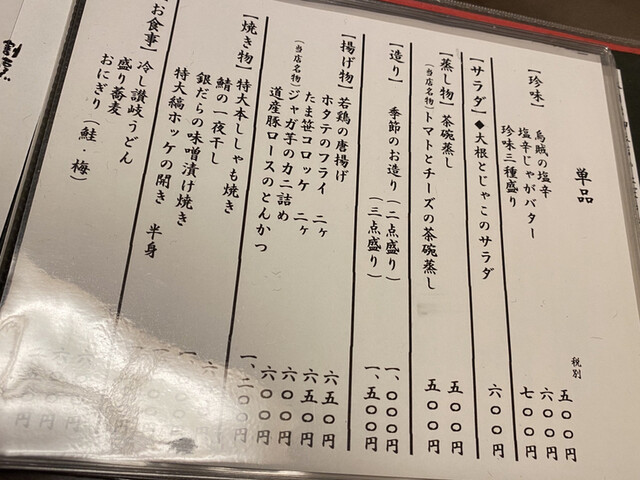 単品
税別
【珍味】
烏賊の塩辛 五〇〇円
塩辛じゃがバター 六〇〇円
珍味三種盛り 七〇〇円
【サラダ】◆大根とじゃこのサラダ 六〇〇円
【蒸し物】茶碗蒸し 五〇〇円
(当店名物)トマトとチーズの茶碗蒸し 五〇〇円
【造り】 季節のお造り(二点盛り) 一、〇〇〇円
(三点盛り) 一、五〇〇円
【揚げ物】若鶏の唐揚げ 六五〇円
ホタテのフライ 二ヶ 六五〇円
たま笹コロッケ 二ヶ 六〇〇円
(当店名物)ジャガ芋のカニ詰め 六〇〇円
道産豚ロースのとんかつ 一、二〇〇円
【焼き物】特大本ししゃも焼き
鯖の一夜干し
銀だらの味噌漬け焼き
特大縞ホッケの開き 半身
お食事】冷し讃岐うどん
盛り蕎麦
おにぎり(鮭・梅)